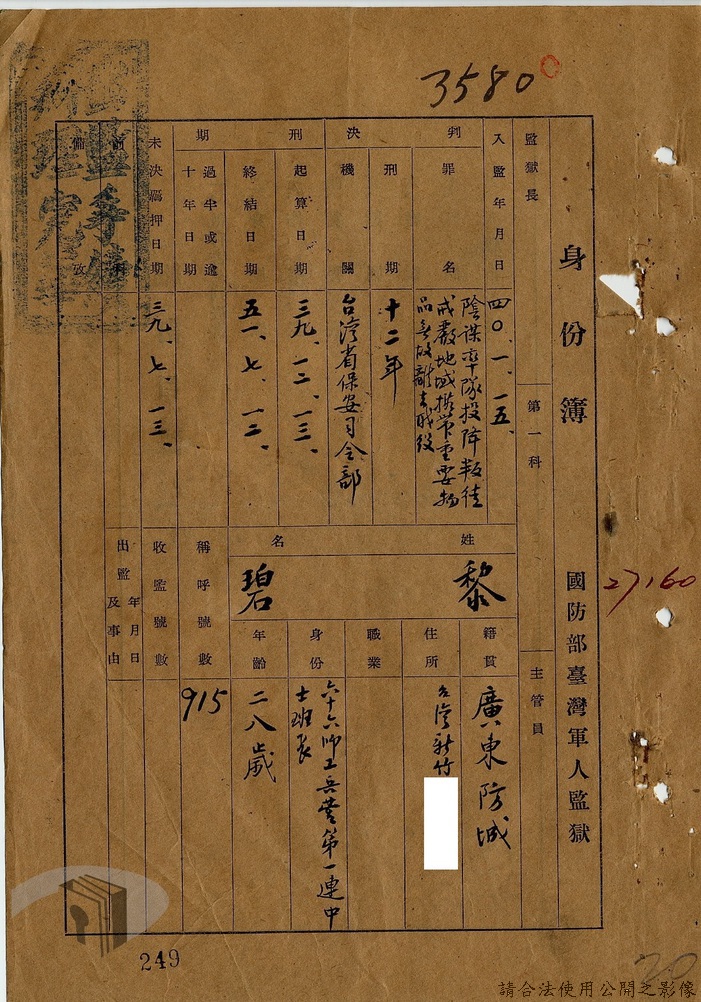 3580
身份簿
國防部臺灣軍人監獄
27160
監獄長
第一科
主管員
入監年月日
四〇、一、一五、
判決
罪名
陰謀率隊投降叛徒
戒嚴地域攜帶重要物
品無故離去職役
刑期
十二年
機關
台灣省保安司令部
刑期
起算日期
三九、一二、一三、
終結日期
五一、七、一二、
過半或逾
十年日期
未決羈押日期
三九、七、一三、
備考
姓名
黎碧
籍貫
廣東防城
住所
台灣新竹
職業
身份
六十六師工兵營第一連中
士班長
年齡
二八歲
稱呼號數
915
收監號數
出監年月日
及事由
249
20
請合法使用公開之影像